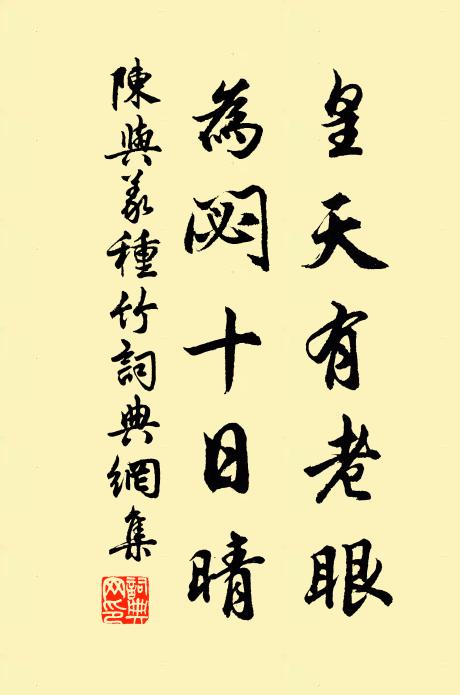 皇天有老眼
為閟十日晴
陳與義種竹詞典網集
詞典
网印